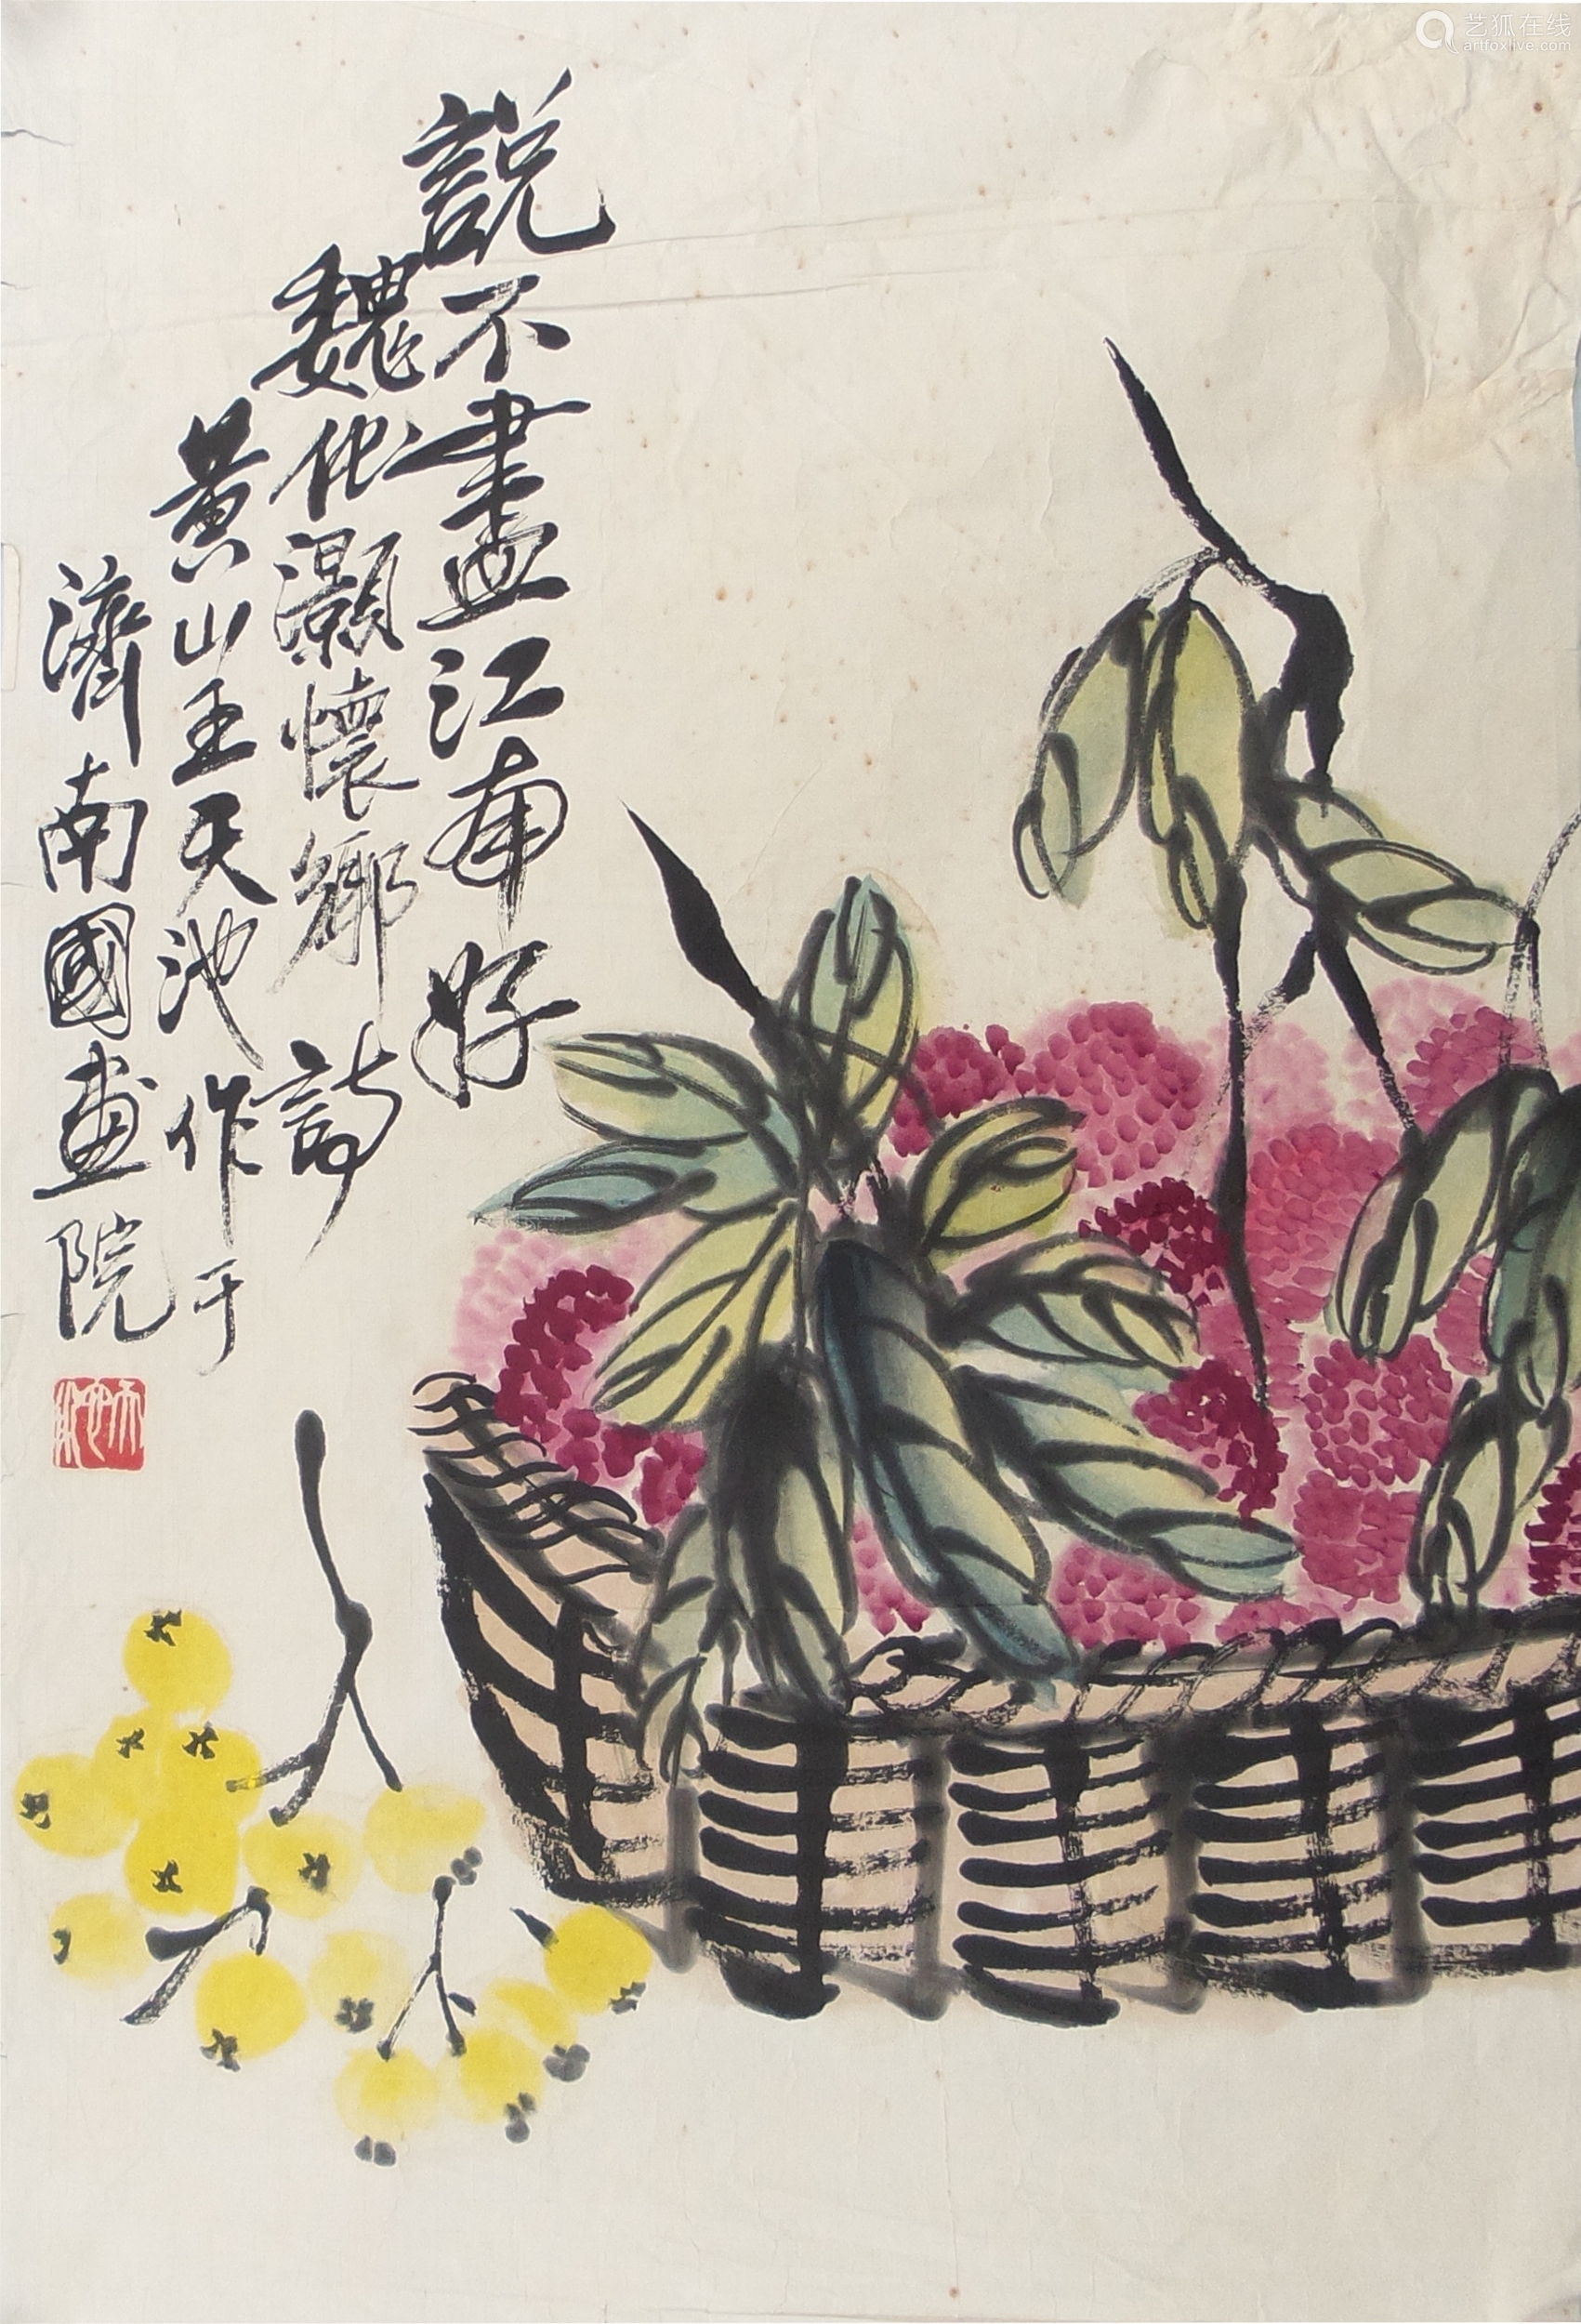 說不盡江南好
魏他灝懷鄉詩
黃山王天池作于
濟南國畫院
天池
艺狐在线
artfoxlive.com